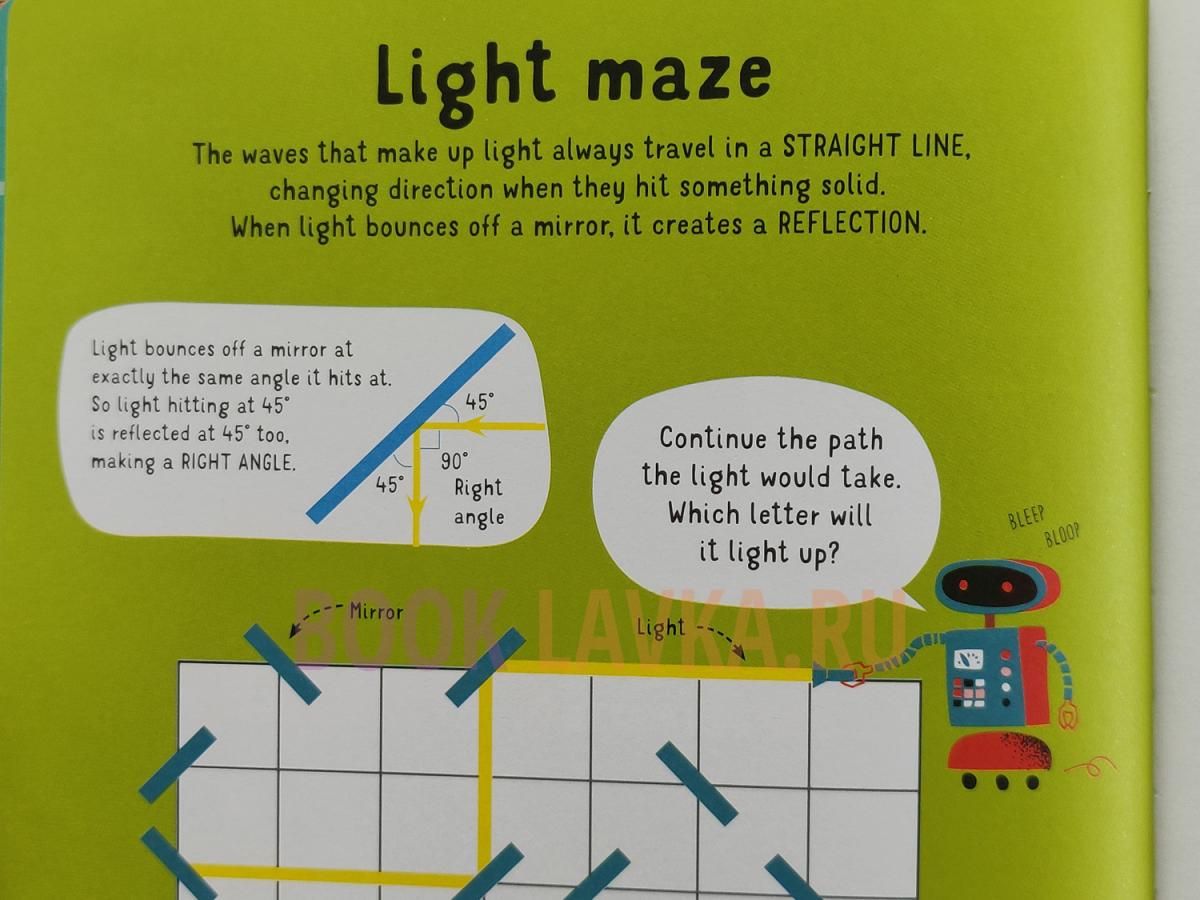 Light maze
The waves that make up light always travel in a STRAIGHT LINE,
changing direction when they hit something solid.
When light bounces off a mirror, it creates a REFLECTION.
Light bounces off a mirror at
exactly the same angle it hits at.
So light hitting at 45°
is reflected at 45° too,
making a RIGHT ANGLE.
45°
90°
45°
Right
angle
Continue the path
the light would take.
Which letter will
it light up?
BLEEP
BLOOP
Mirror
Light
BOOK LAVKA.RU